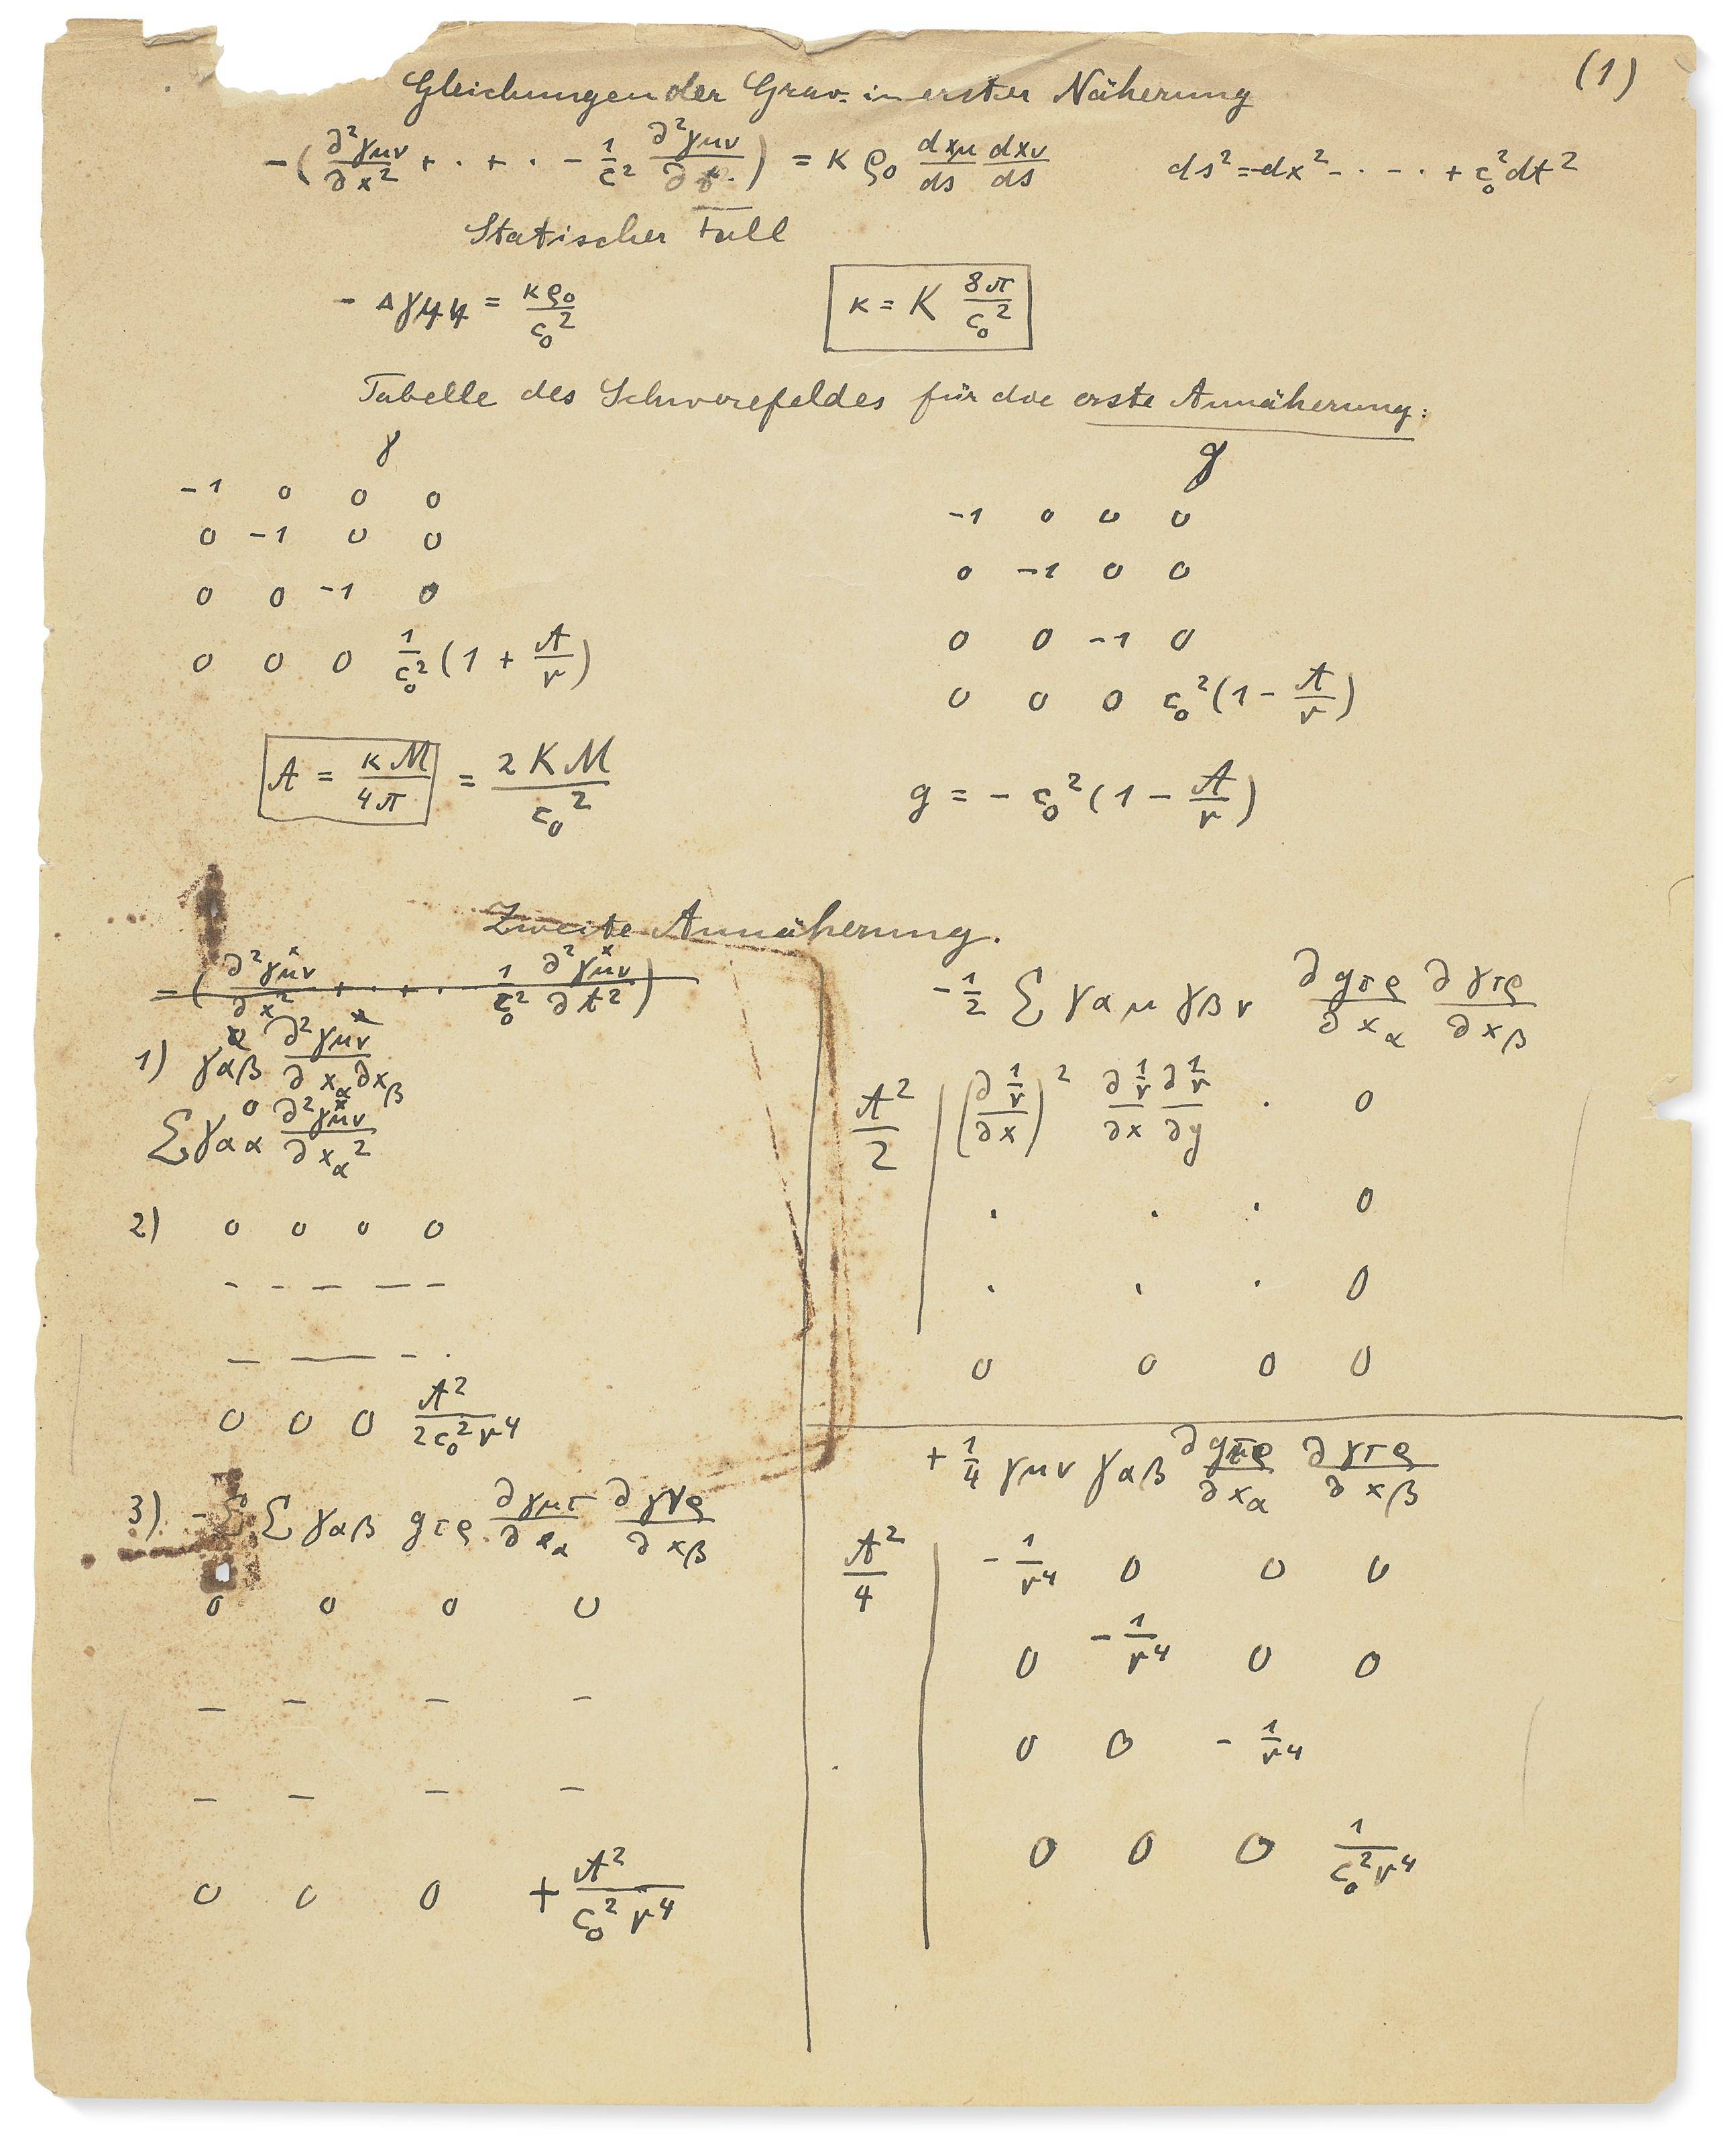 (1)
Gleichungen der Grav. in erster Näherung
-(∂²γμν/∂x² + · + · - 1/c² ∂²γμν/∂t²) = κ ρ₀ dxμ/ds dxν/ds    ds² = -dx² - · - · + c₀² dt²
Statischer Fall
- Δγ44 = κρ₀/c₀²    κ = K 8π/c₀²
Tabelle des Schwerefeldes für die erste Annäherung:
γ
-1 0 0 0
0 -1 0 0
0 0 -1 0
0 0 0 1/c₀² (1 + A/r)
A = κM/4π = 2KM/c₀²
g
-1 0 0 0
0 -1 0 0
0 0 -1 0
0 0 0 c₀² (1 - A/r)
g = - c₀² (1 - A/r)
Zweite Annäherung.
-(∂²γμν^x/∂x² + · + · - 1/c₀² ∂²γμν^x/∂t²)
1) γαβ^0 ∂²γμν^x/∂xα∂xβ
Σγαα^0 ∂²γμν^x/∂xα²
2) 0 0 0 0
- - - - -
- - - ·
0 0 0 A²/2c₀²r⁴
3) -Σ Σ γαβ gτρ ∂γμτ/∂xα ∂γνρ/∂xβ
0 0 0 0
- - - -
- - - -
0 0 0 + A²/c₀²r⁴
-1/2 Σ γαμ γβν ∂gτρ/∂xα ∂γτρ/∂xβ
A²/2 | (∂(1/r)/∂x)² ∂(1/r)/∂x ∂(1/r)/∂y · 0
· · · 0
· · · 0
0 0 0 0
+ 1/4 γμν γαβ ∂gτρ/∂xα ∂γτρ/∂xβ
A²/4 | -1/r⁴ 0 0 0
0 -1/r⁴ 0 0
0 0 -1/r⁴
0 0 0 1/c₀²r⁴